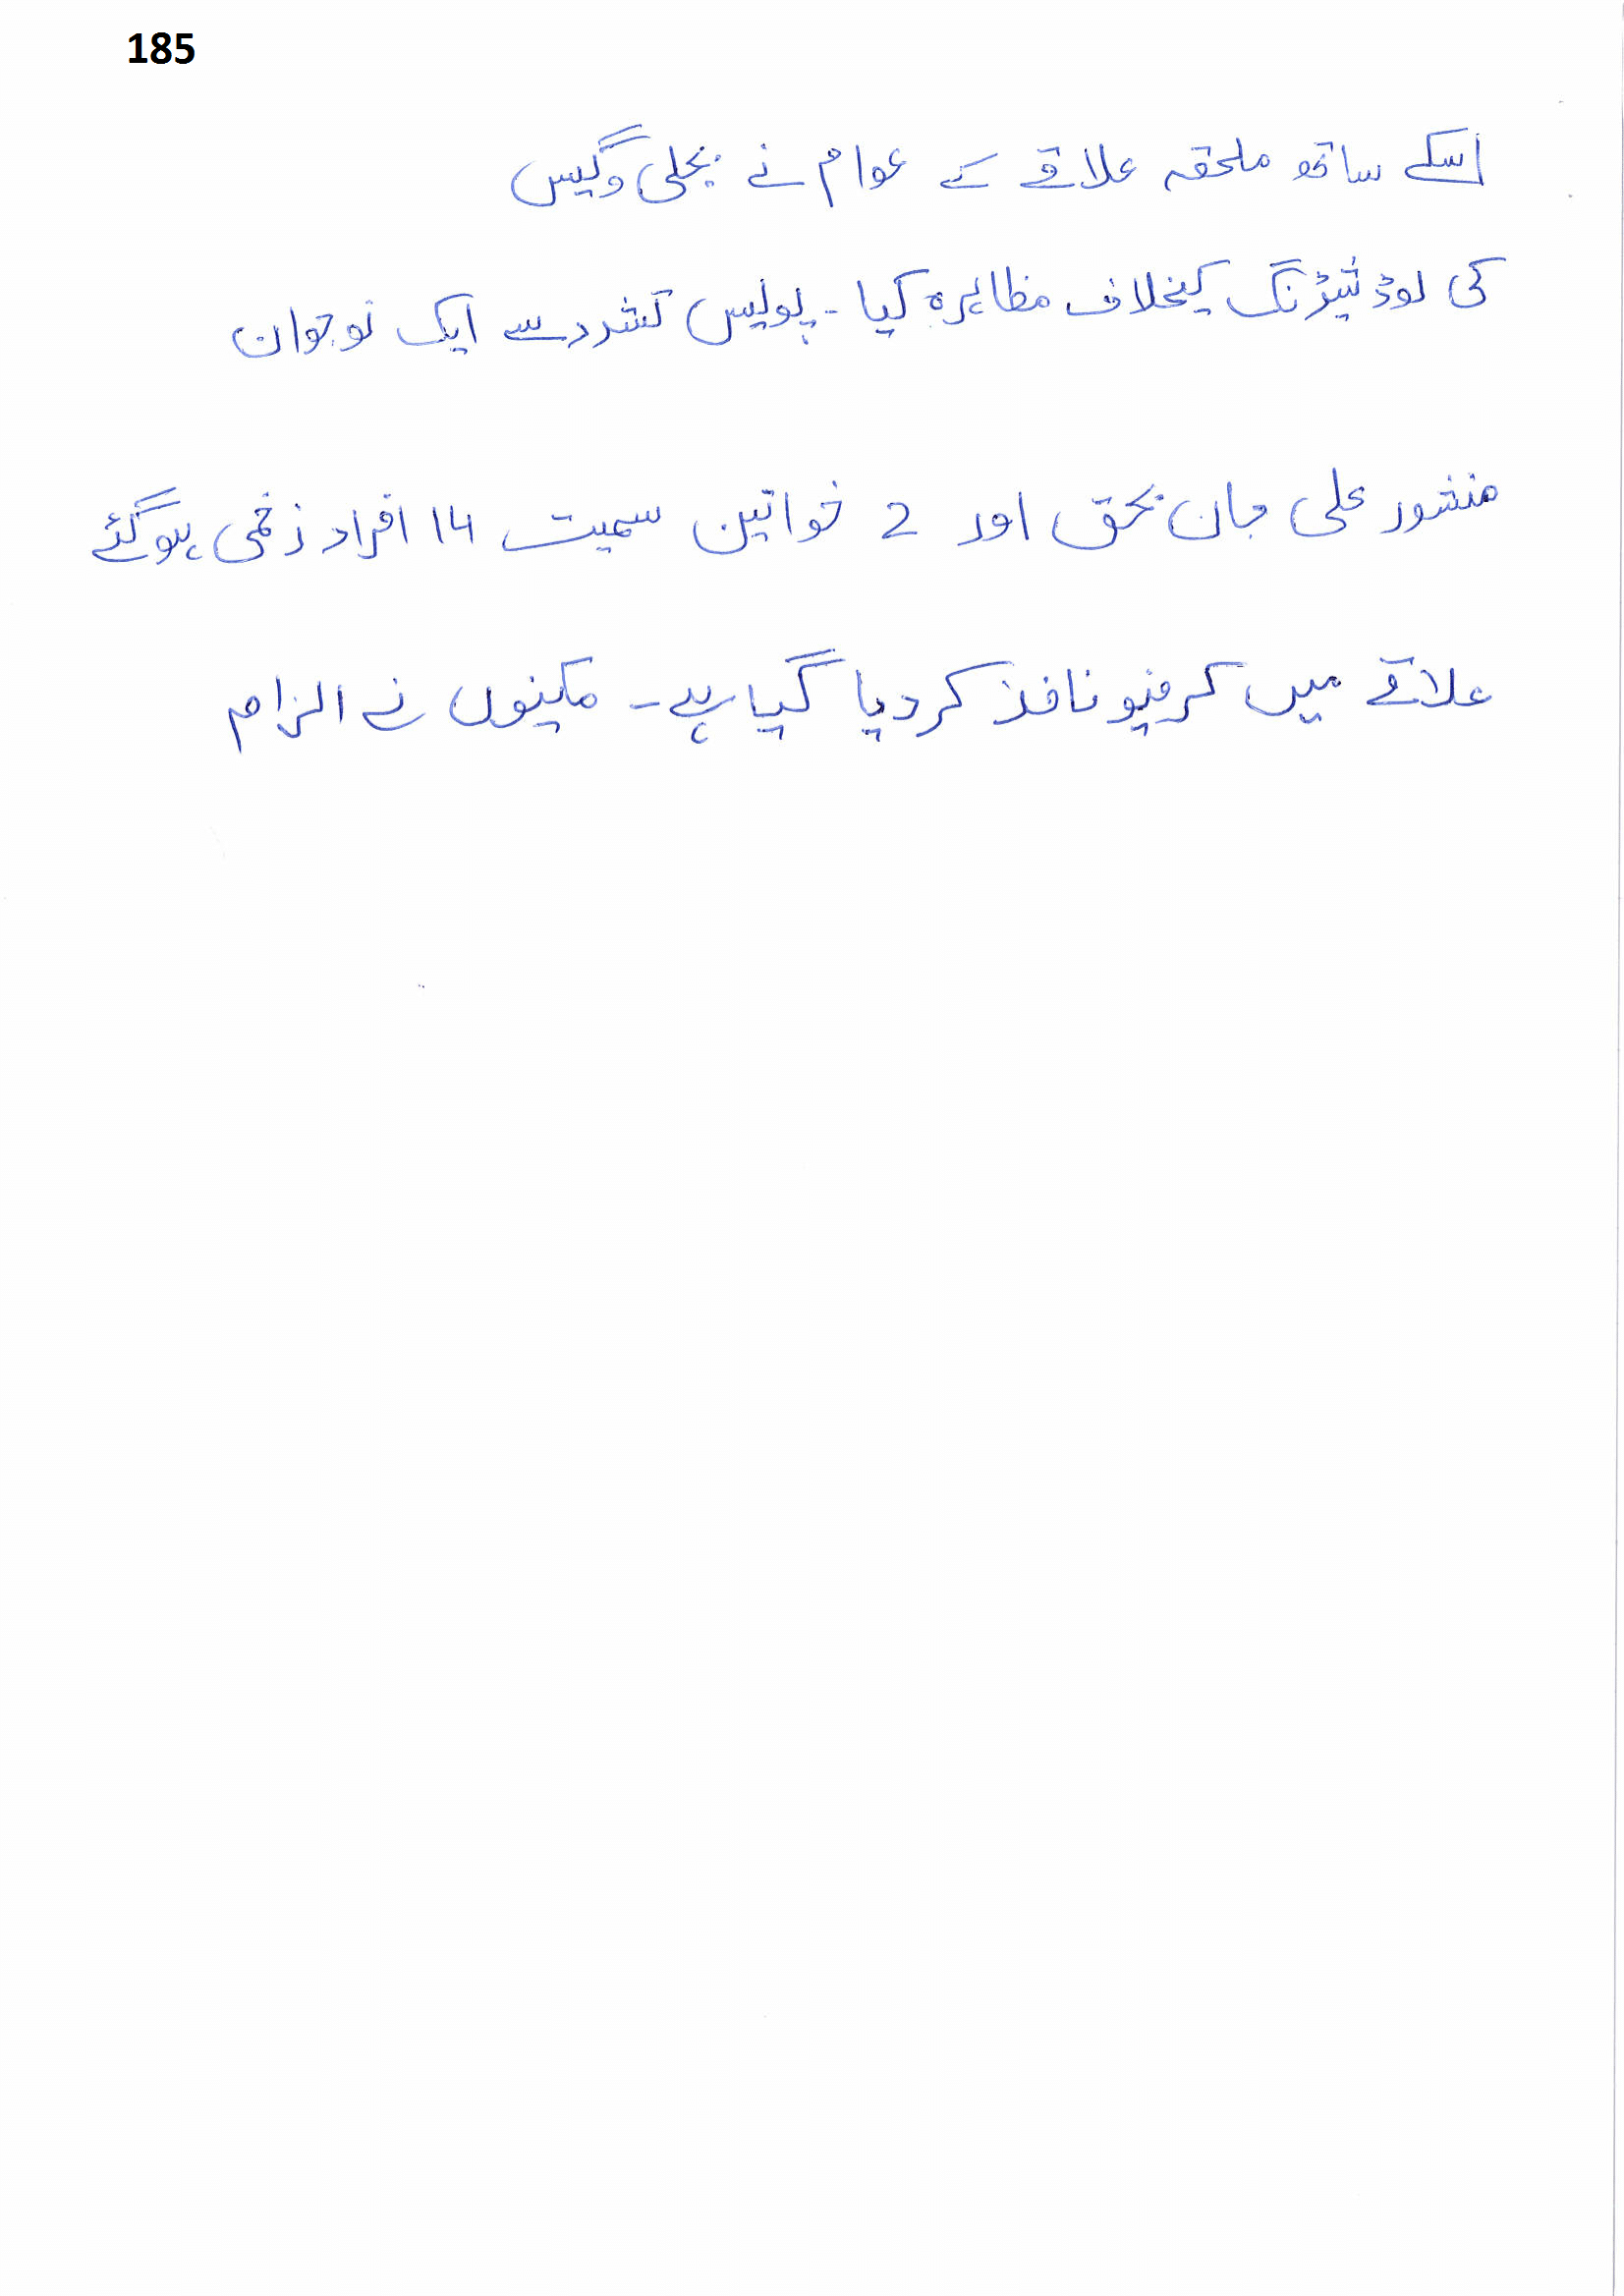 185
اسکے ساتھ ملحقہ علاقے کے عوام نے بجلی وگیس
کی لوڈ شیڈنگ کیخلاف مظاہرہ کیا ۔ پولیس تشدد سے ایک نوجوان
منشور علی جان بحق اور 2 خواتین سمیت 14 افراد زخمی ہوگئے
علاقے میں کرفیو نافذ کردیا گیا ہے ۔ مکینوں نے الزام